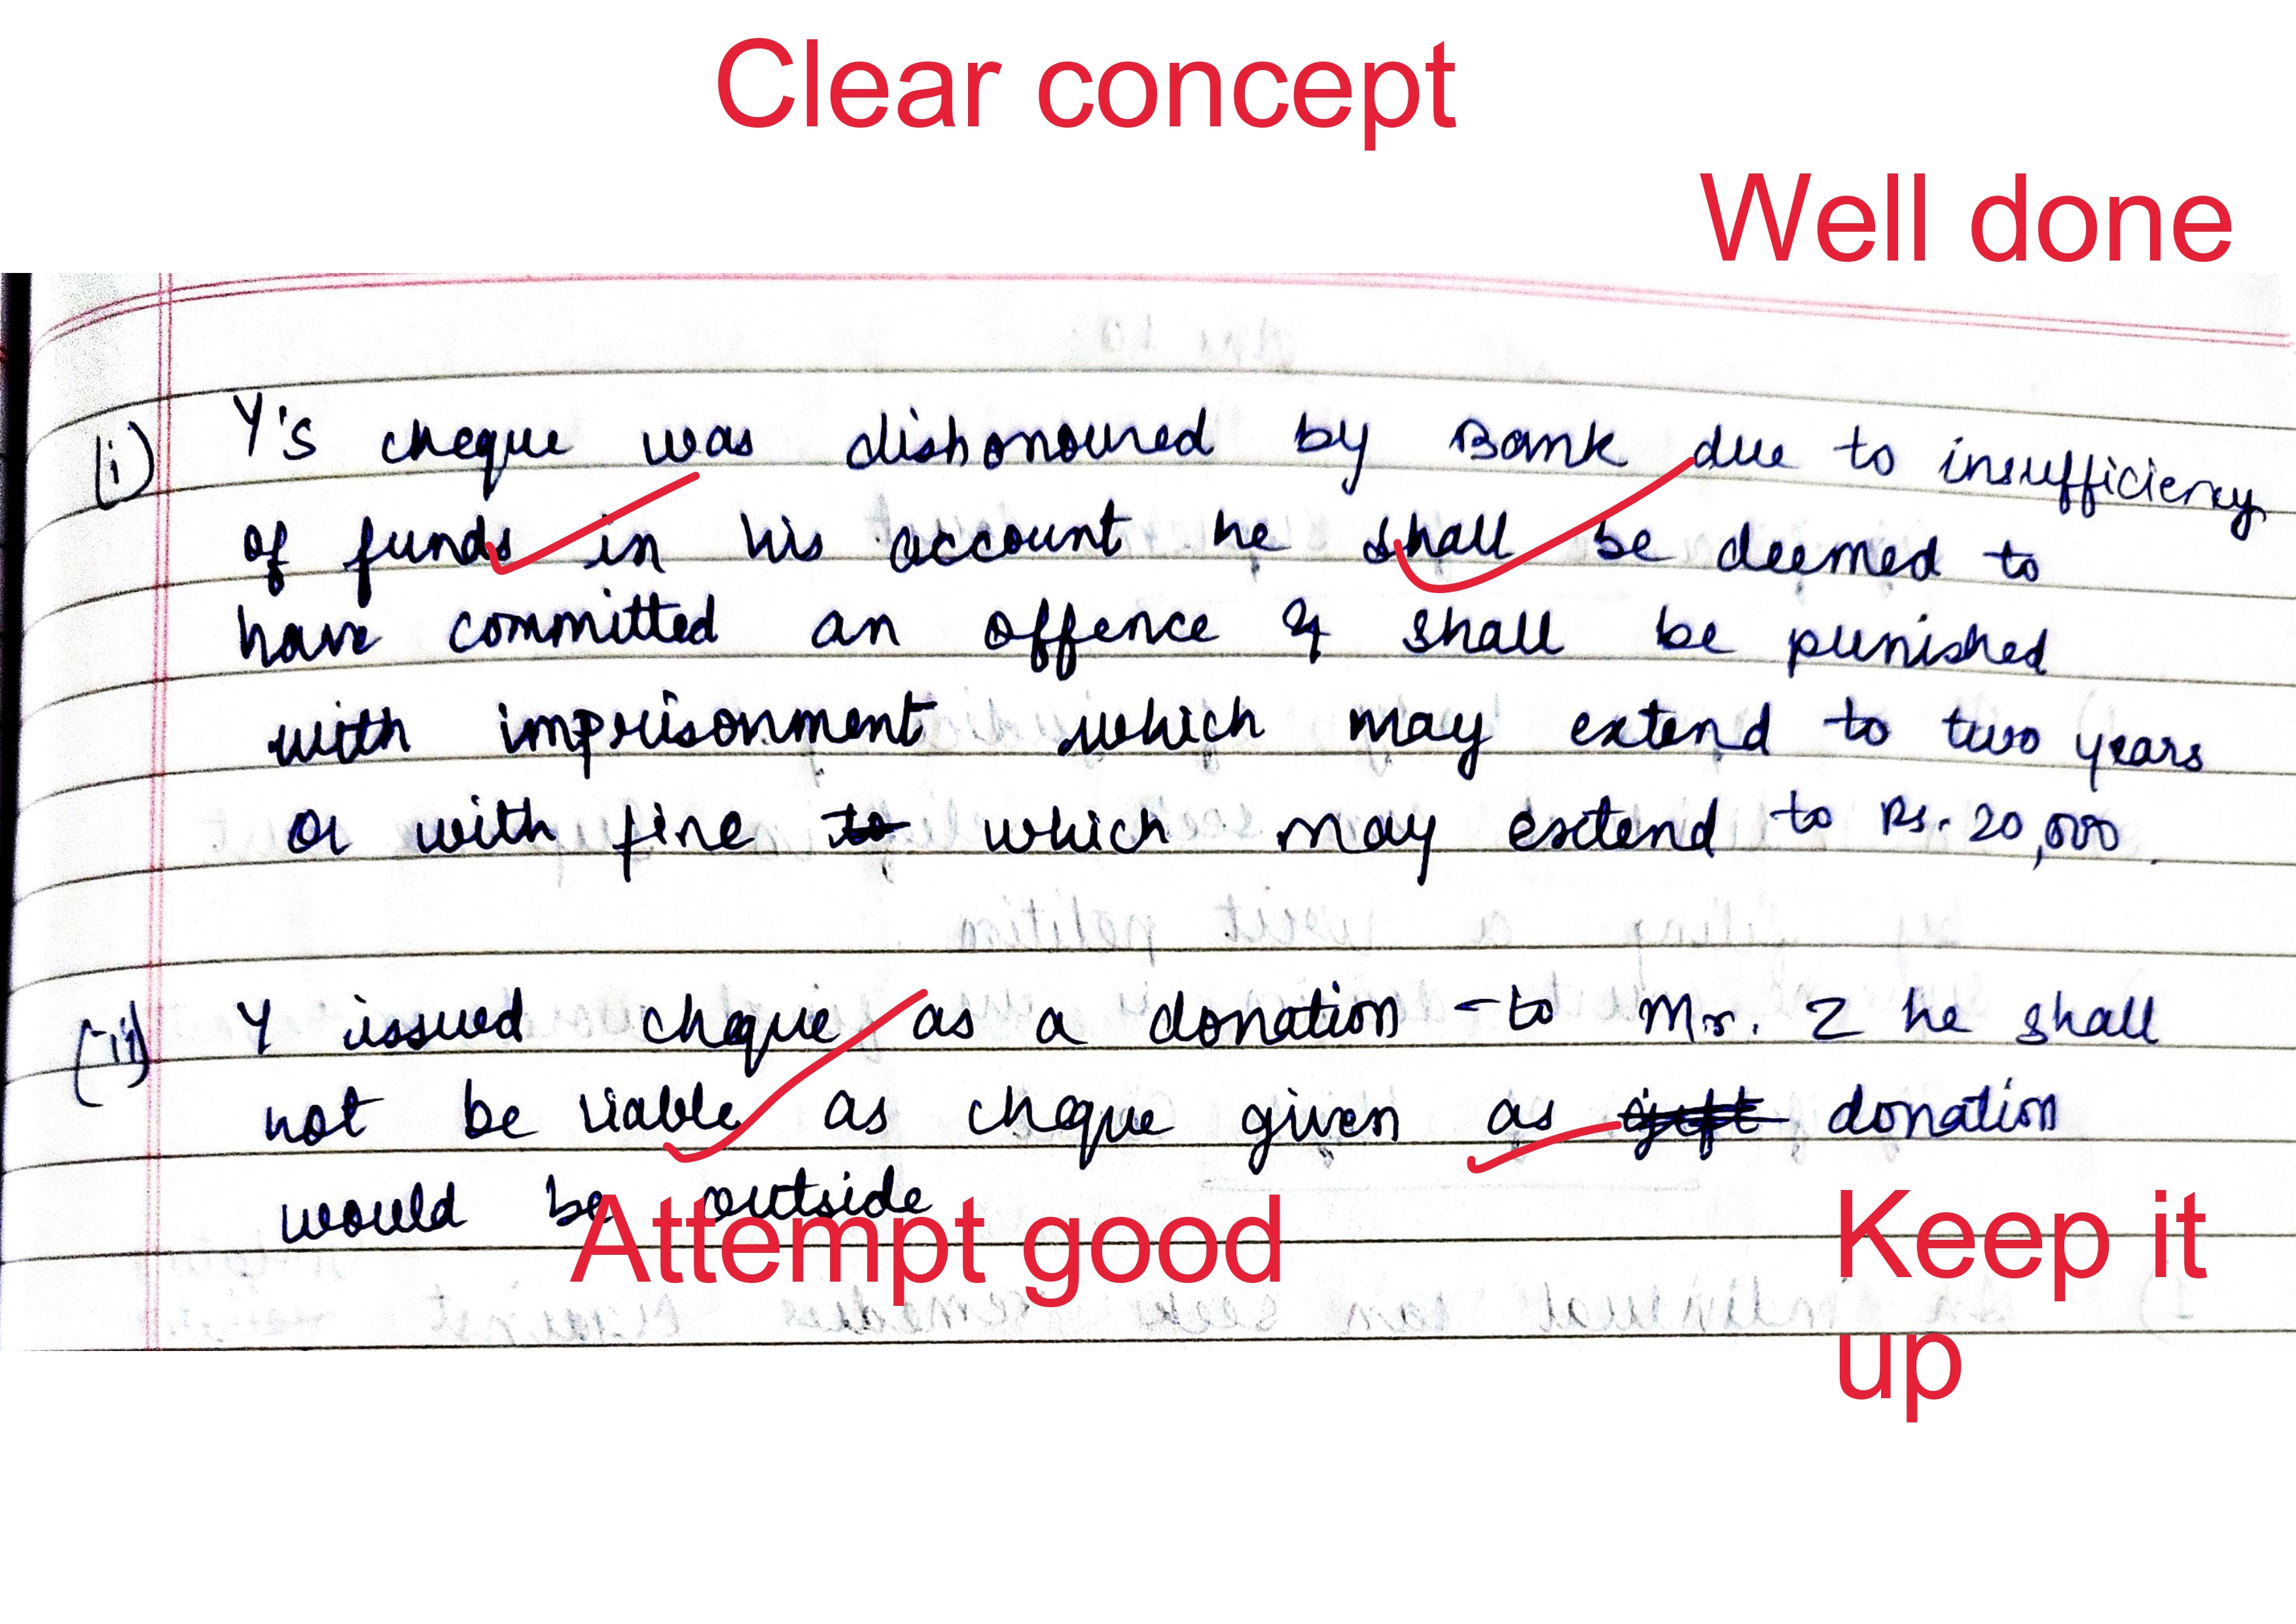 Clear concept
Well done
(i) Y's cheque was dishonoured by Bank due to insufficiency
of funds in his account he shall be deemed to
have committed an offence & shall be punished
with imprisonment which may extend to two years
or with fine to which may extend to Rs. 20,000.
(ii) Y issued cheque as a donation to Mr. Z he shall
not be liable as cheque given as gift donation
would be outside
Attempt good
Keep it
up